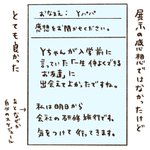 展示の感想ではなかったけど
とても良かった
おなまえ: Yパパ
感想をお聞かせください。
Yちゃんが入学前に
言っていた「一生仲よくできる
お友達」に
出会えてよかったですね。
私は明日から
会社の研修旅行です。
気をつけて行ってきます。
あとなぜか
自分のスケジュール